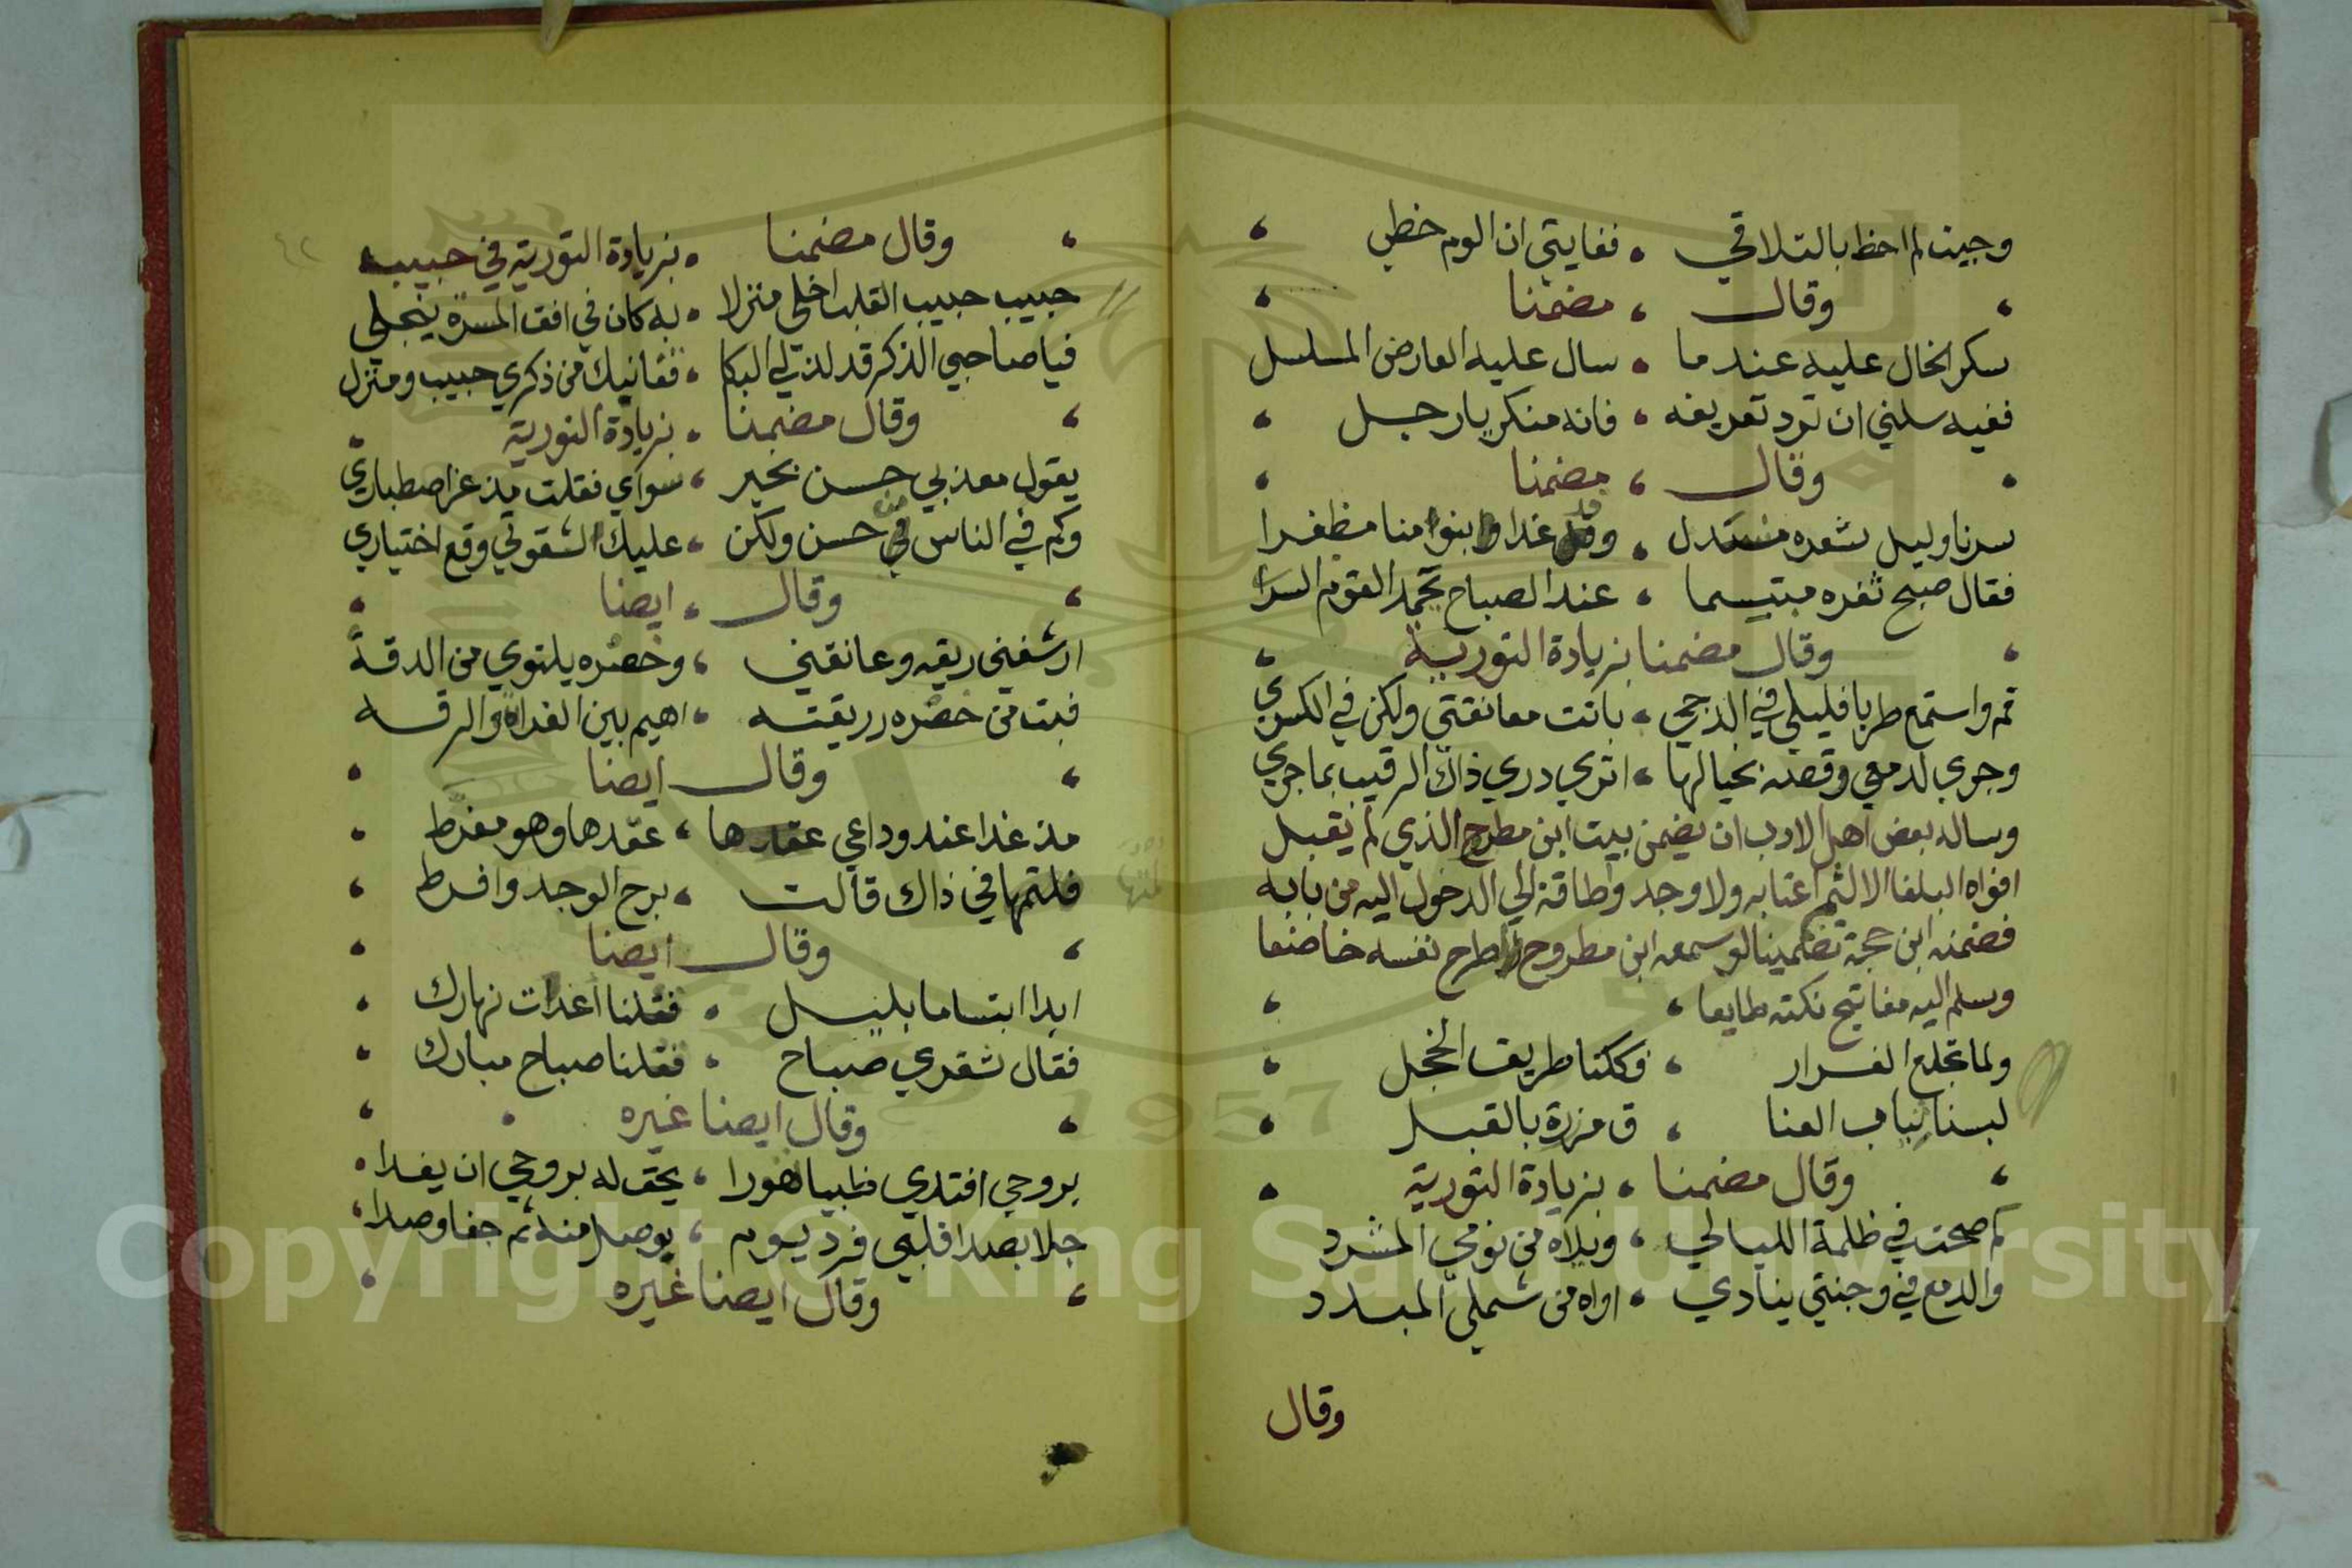 وجيت لم احظ بالتلاقي ، فغايتي ان الوم حظي
وقال ، مضمنا
سكر الخال عليه عندما ، سال عليه العارض المسلسل
ففيه سلني ان ترد تعريفه ، فانه منكر يا رجل
وقال ، مضمنا
سرنا وليل شعره منسدل ، وقد غدا وابنوا منا مظفرا
فقال صبح ثغره مبتسما ، عند الصباح يحمد القوم السرا
وقال مضمنا بزيادة التورية
قم واستمع طربا فليلي في الدجي ، باتت معانقتي ولكن في الكري
وجري لدمعي وقصته بخيالها ، اتري دري ذاك الرقيب بما جري
وساله بعض اهل الادب ان يضمن بيت ابن مطرح الذي لم تقبل
افواه البلغا الا لثم اعتابه ولا وجد وا طاقة الي الدخول اليه من بابه
فضمنه ابن حجة تضمينا لو سمعه ابن مطروح لاطرح نفسه خاضعا
وسلم اليه مفاتيح نكته طايعا ،
ولما تخلع الفرار ، وككنا طريق الخجل
لبسنا ثياب العنا ، ق مزررة بالقبل
وقال مضمنا ، بزيادة التورية
كم صحت في ظلمة الليالي ، ويلاه من نومي المشرد
والدمع في وجنتي ينادي ، اواه من شملي المبدد
وقال
٤٢
وقال مضمنا ، بزيادة التورية في حبيب
حبيب حبيب القلب اخلي منزلا ، به كان في افق المسرة ينجلي
فيا صاحبي الذكر قد لذ لي البكا ، قفانبك من ذكري حبيب ومنزل
وقال مضمنا ، بزيادة التورية
يقول معذبي حسن تخير ، سواي فقلت مذ عز اصطباري
وكم في الناس من حسن ولكن ، عليك لشقوتي وقع اختياري
وقال ، ايضا
ارشفني ريقه وعانقني ، وخصره يلتوي من الدقة
فبت من خصره وريقته ، اهيم بين الفراة والرقه
وقال ايضا
مذ غدا عند وداعي عقدها ، عقدها وهو مفرط
فلثمتها في ذاك قالت ، برح الوجد وافرط
وقال ايضا
ابدا ابتساما بليل ، فقلنا اعدات نهارك
فقال ثغري صباح ، فقلنا صباح مبارك
وقال ايضا غيره
بروحي افتدي ظبيا هورا ، يحق له بروحي ان يفدا
جلا بصدا قلبي فرد يوم ، بوصل منه ثم جفا وصدا
وقال ايضا غيره
1957
Copyright © King Saud University